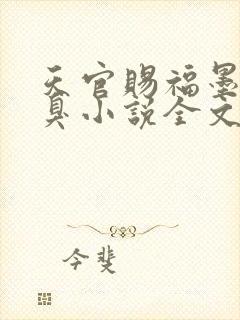 天官赐福墨
具小说全文
今斐